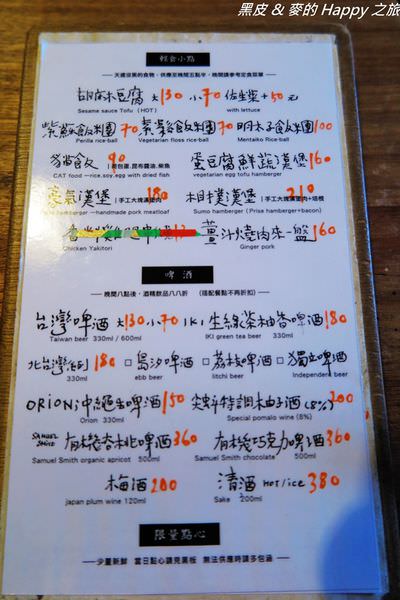 黑皮 & 麥的 Happy 之旅
輕食小點
— 天還沒黑的食物，供應至晚間五點半，晚間請參考定食菜單 —
胡麻木豆腐 大130 小70 佐生菜+50元
Sesame sauce Tofu (HOT) with lettuce
紫蘇飯糰 70 素鬆飯糰 70 明太子飯糰 100
Perilla rice-ball Vegetarian floss rice-ball Mentaiko Rice-ball
貓飯 90 蛋豆腐鮮蔬漢堡 160
CAT food —rice,soy,egg with dried fish vegetarian egg tofu hamburger
豪氣漢堡 180 相撲漢堡 210
hamburger —handmade pork meatloaf Sumo hamburger (Prise hamburger+bacon)
薑汁燒肉來一盤 160
Chicken Yakitori Ginger pork
啤酒
— 晚間八點後，酒精飲品八八折 (搭配餐點不再折扣) —
台灣啤酒 大130 小70 IKI 生綠茶柚香啤酒 180
Taiwan beer 330ml / 600ml IKI green tea beer 330ml
北台灣系列 180 □烏沙啤酒 □荔枝啤酒 □獨立啤酒
330ml ebb beer litchi beer Independent beer
ORION沖繩生啤酒 150 特調柚子酒(8%) 200
Orion 330ml Special pomalo wine (8%)
SAMUEL SMITH 有機杏桃啤酒 360 有機巧克力啤酒 360
Samuel Smith organic apricot 500ml Samuel Smith chocolate 500ml
梅酒 200 清酒 HOT/ice 380
japan plum wine 120ml Sake 200ml
限量點心
— 少量新鮮 當日點心請見黑板 無法供應時請多包涵 —